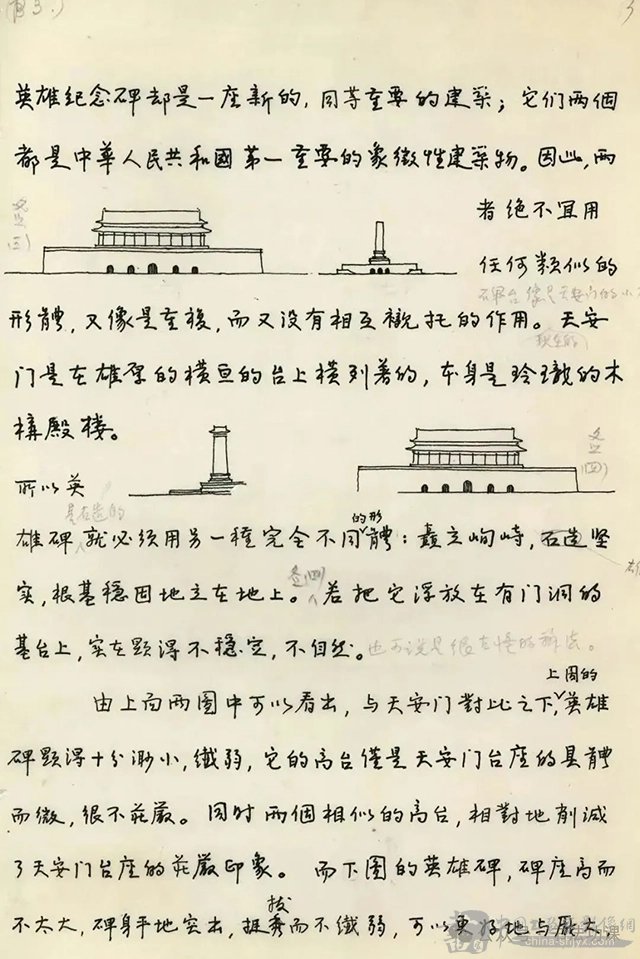 (頁3.)
英雄纪念碑却是一座新的，同等重要的建築；它们两個
都是中華人民共和國第一重要的象徵性建築物。因此，两
者绝不宜用
(三)
任何類似的
碑台像是天安门的小
形體，又像是重複，而又没有相互襯托的作用。天安
门是在雄厚的横亘的台上横列着的，本身是玲瓏的木
構殿楼。
(四)
所以英
是石造的
的形
雄碑就必须用另一種完全不同體：矗立峋峙，石造坚
实，根基穩固地立在地上。若把它浮放在有门洞的
基台上，实在顯得不穩定，不自然。也可说是很古怪的辦法。
上图的
由上面两图中可以看出，与天安门對比之下，英雄
碑顯得十分渺小，纖弱，它的高台僅是天安门台座的具體
而微，很不莊嚴。同时两個相似的高台，相對地削減
了天安门台座的莊嚴印象。而下图的英雄碑，碑座高而
拔
不太大，碑身平地突出，挺而不纖弱，可以更好地与庞大，
china-shjyx.com